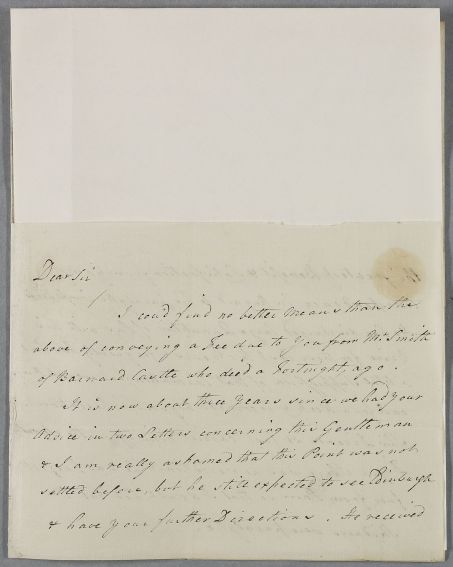 Dear Sir
I coud find no better Means than the
above of conveying a Fee due to You from Mr Smith
of Barnard Castle who died a Fortnight, ago.
It is now about three Years since we had your
Advice in two Letters concerning this Gentleman
& I am really ashamed that this Point was not
settled before, but he still expected to see Edinburgh
& have your further Directions. He received